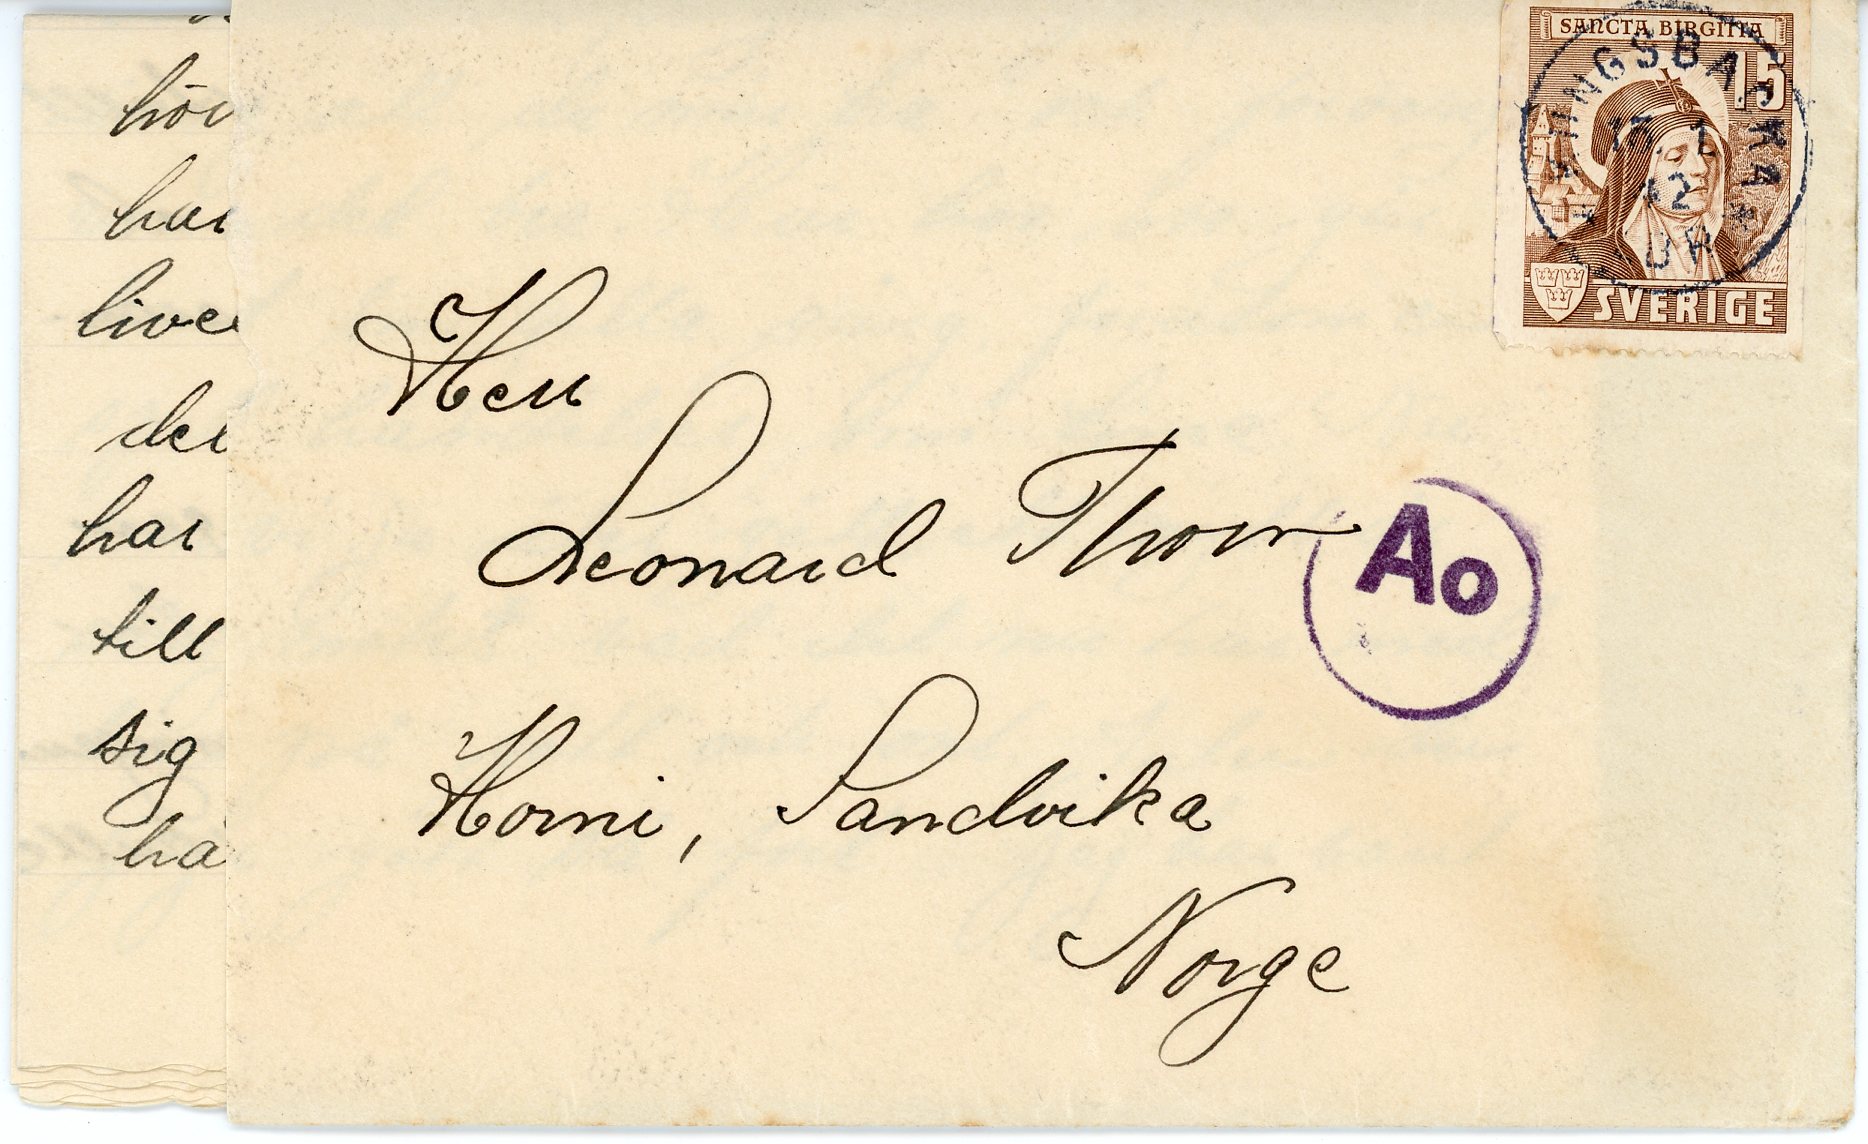 hör
har
live
der
har
till
sig
hå
SANCTA BIRGITTA
15
42
SVERIGE
Herr
Leonard Thorn
Ao
Horni, Sandvika
Norge